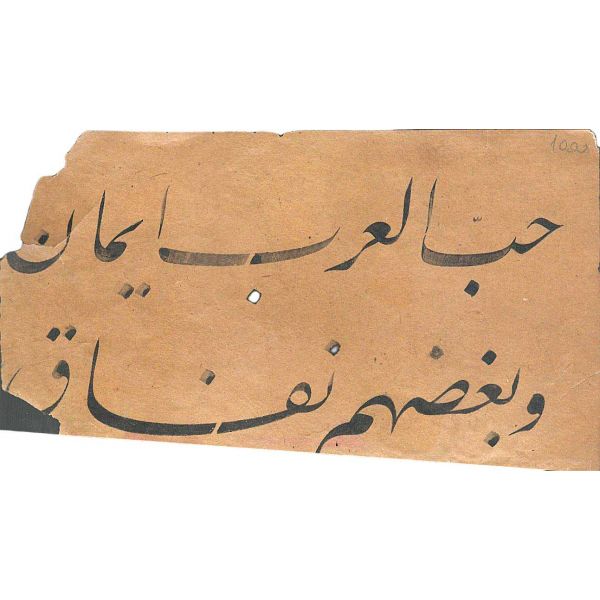 حبّ العرب ايمان
وبغضهم نفاق